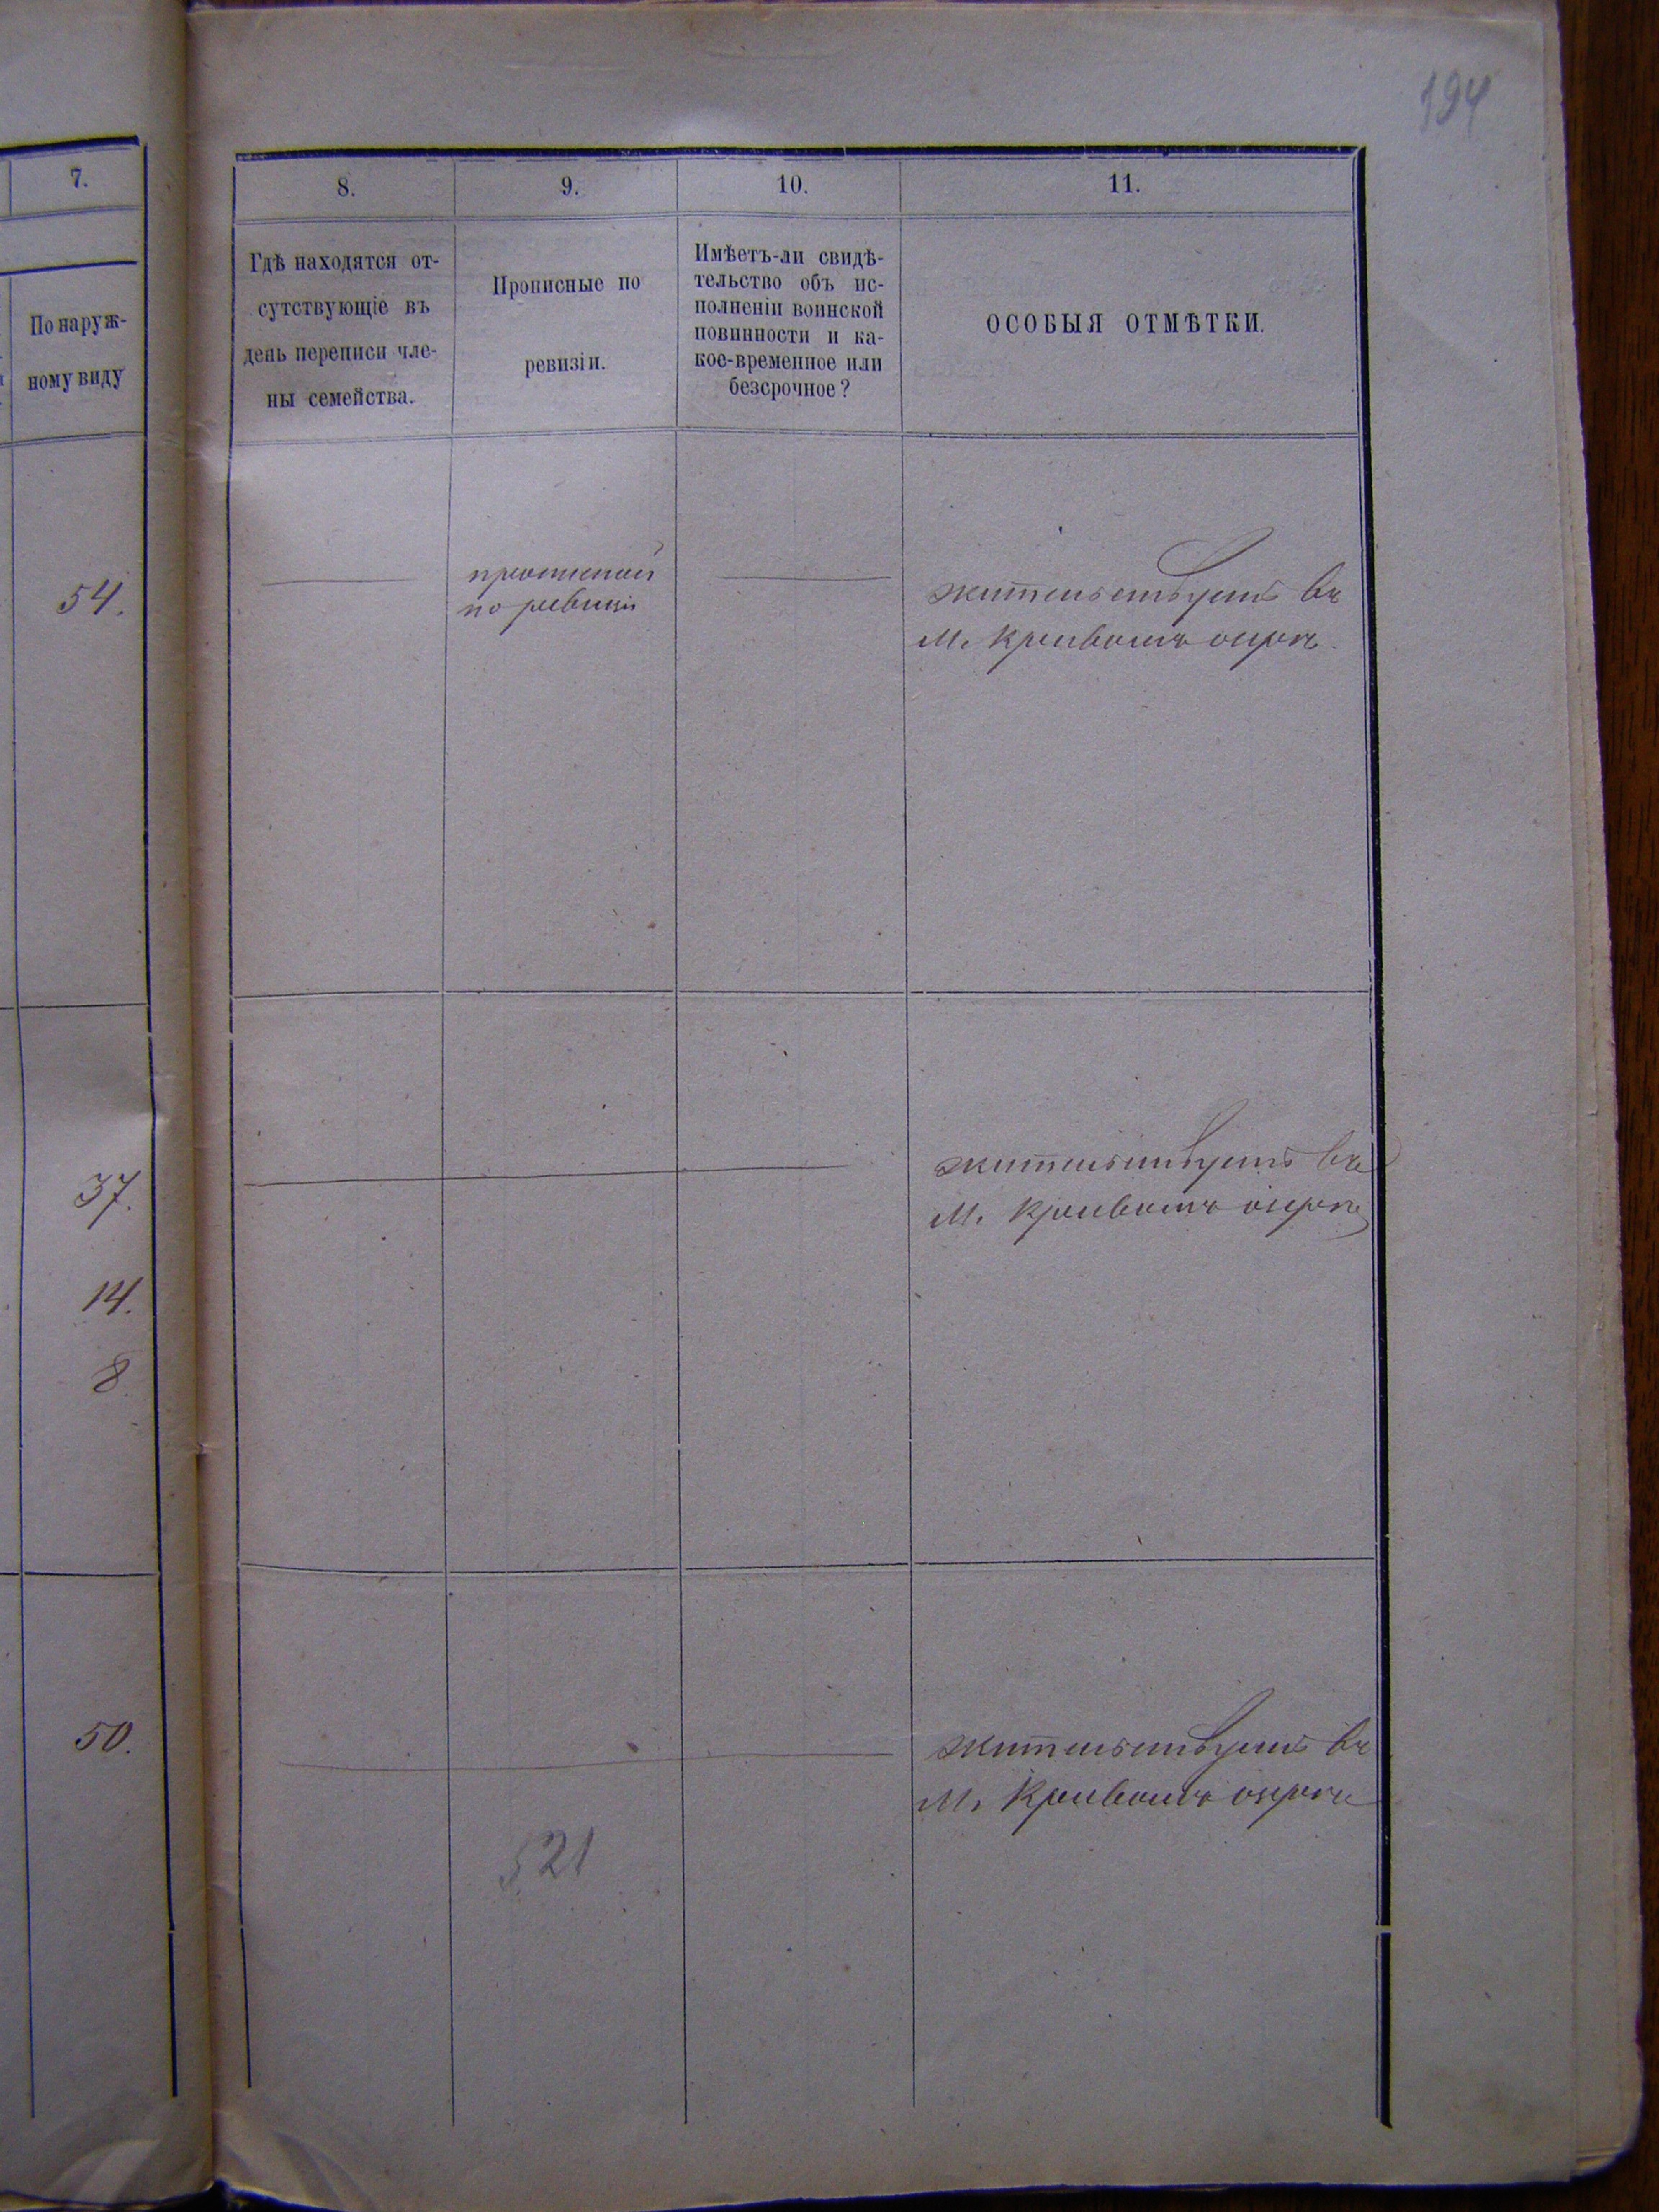 194
7.
По наруж-
ному виду
54.
37.
14.
8.
50.
8.
Гдѣ находятся от-
сутствующіе въ
день переписи чле-
ны семейства.
9.
Прописные по
ревизіи.
10.
Имѣетъ-ли свидѣ-
тельство объ ис-
полненіи воинской
повинности и ка-
кое-временное или
безсрочное?
11.
ОСОБЫЯ ОТМѢТКИ.
прописной
по ревизіи
жительствуетъ въ
м. Кривомъ озерѣ.
жительствуетъ въ
м. Кривомъ озерѣ
жительствуетъ въ
м. Кривомъ озерѣ
521